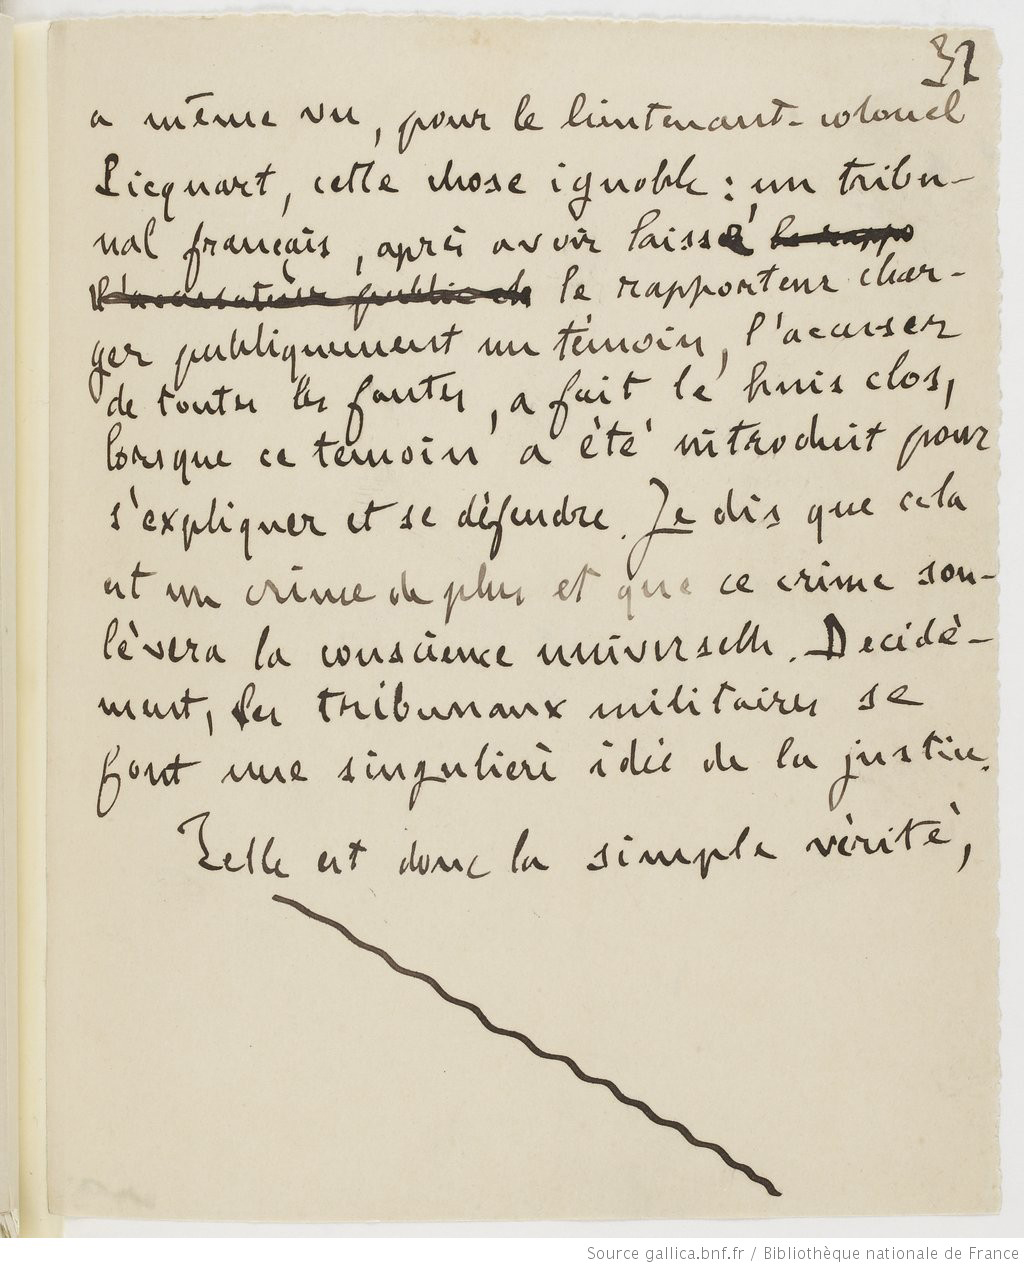 32
a même vu, pour le lieutenant-colonel
Picquart, cette chose ignoble : un tribu-
nal français, après avoir laissé le rappo
l'accusateur public ch le rapporteur char-
ger publiquement un témoin, l'accuser
de toutes les fautes, a fait le huis clos,
lorsque ce témoin a été introduit pour
s'expliquer et se défendre. Je dis que cela
est un crime de plus et que ce crime sou-
lèvera la conscience universelle. Décidé-
ment, les tribunaux militaires se
font une singulière idée de la justice.
Telle est donc la simple vérité,
Source gallica.bnf.fr / Bibliothèque nationale de France